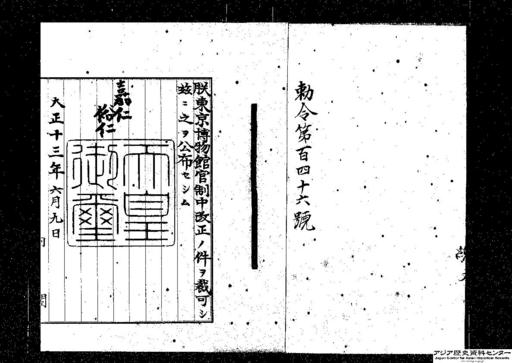 勅令第百四十六號
朕東京博物館官制中改正ノ件ヲ裁可シ
玆ニ之ヲ公布セシム
嘉仁
裕仁
天皇
御璽
大正十三年六月九日
アジア歴史資料センター
Japan Center for Asian Historical Records